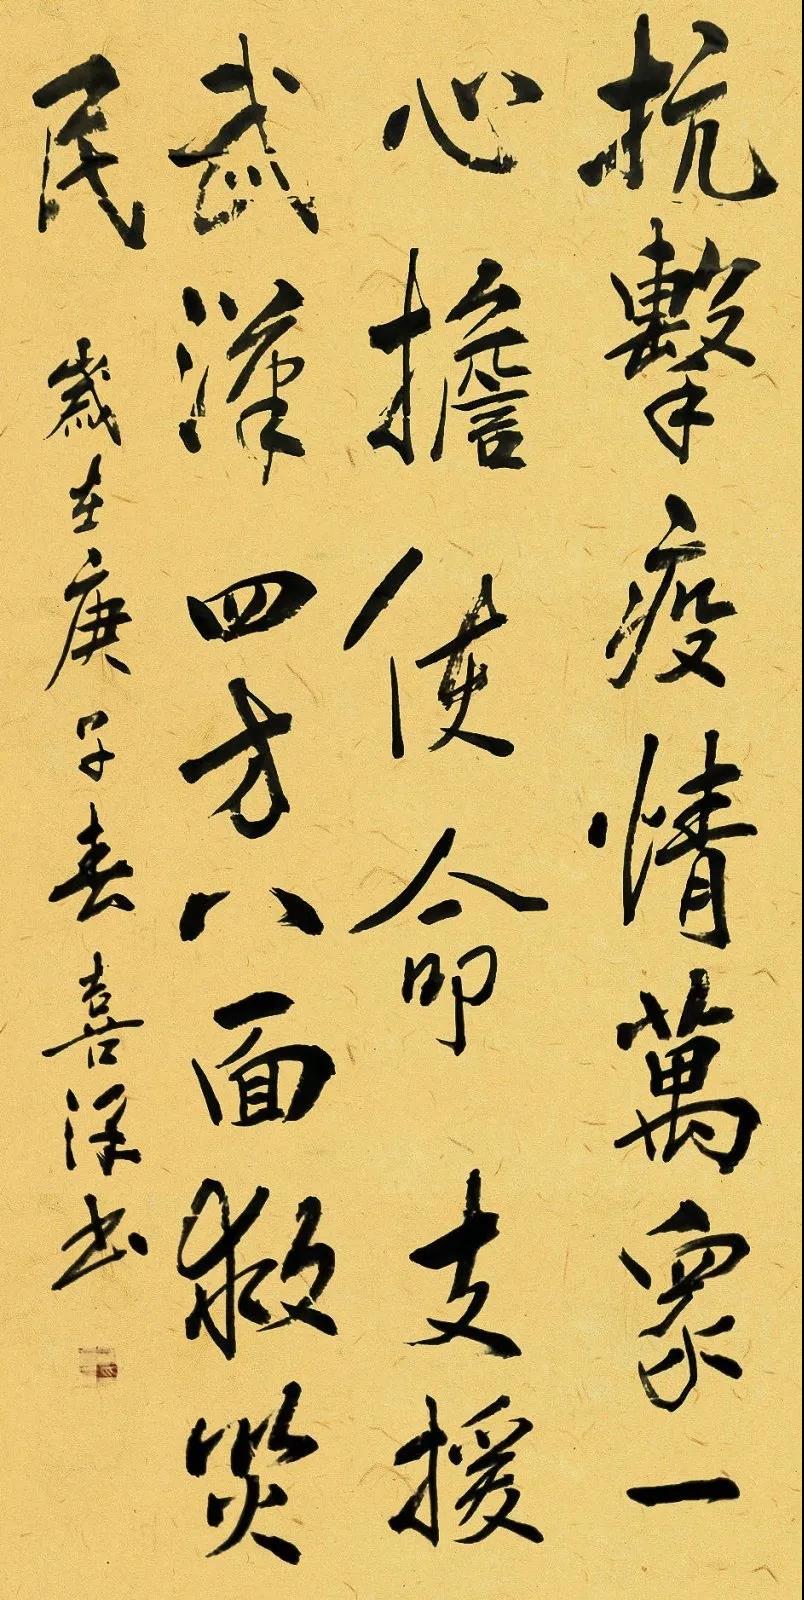 抗擊疫情萬眾一
心擔使命支援
武漢四方八面救災
民
歲在庚子春喜深书